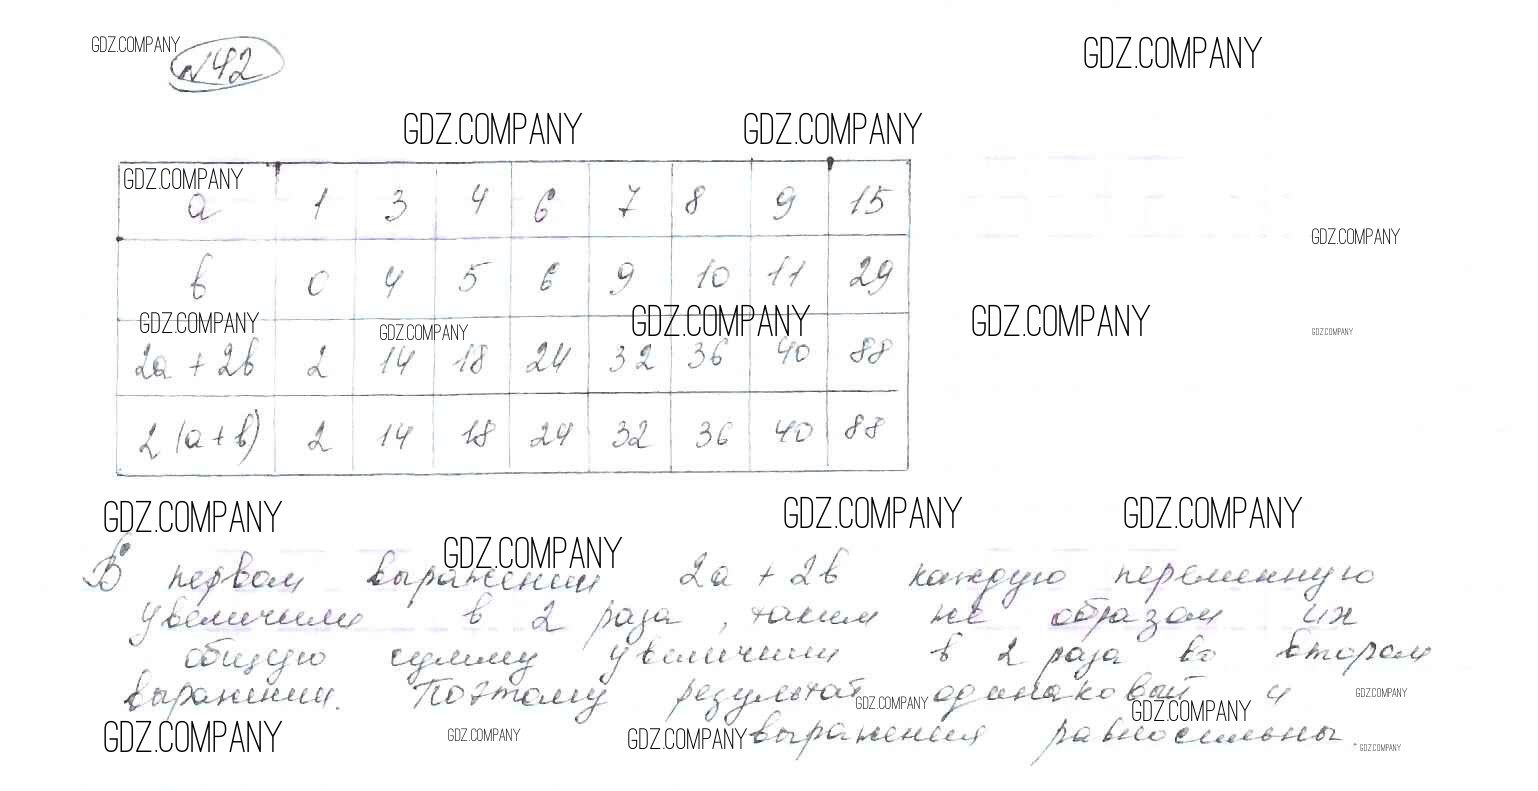 GDZ.COMPANY
№42
GDZ.COMPANY
GDZ.COMPANY GDZ.COMPANY
GDZ.COMPANY
a 1 3 4 6 7 8 9 15
GDZ.COMPANY
b 0 4 5 6 9 10 11 29
GDZ.COMPANY GDZ.COMPANY GDZ.COMPANY GDZ.COMPANY GDZ.COMPANY
2a + 2b 2 14 18 24 32 36 40 88
2(a+b) 2 14 18 24 32 36 40 88
GDZ.COMPANY GDZ.COMPANY GDZ.COMPANY
GDZ.COMPANY
В первом выражении 2a + 2b каждую переменную
увеличили в 2 раза, таким же образом их
общую сумму увеличили в 2 раза во втором
выражении. Поэтому результат одинаковый и
GDZ.COMPANY GDZ.COMPANY GDZ.COMPANY
GDZ.COMPANY GDZ.COMPANY GDZ.COMPANY выражения равносильны. GDZ.COMPANY